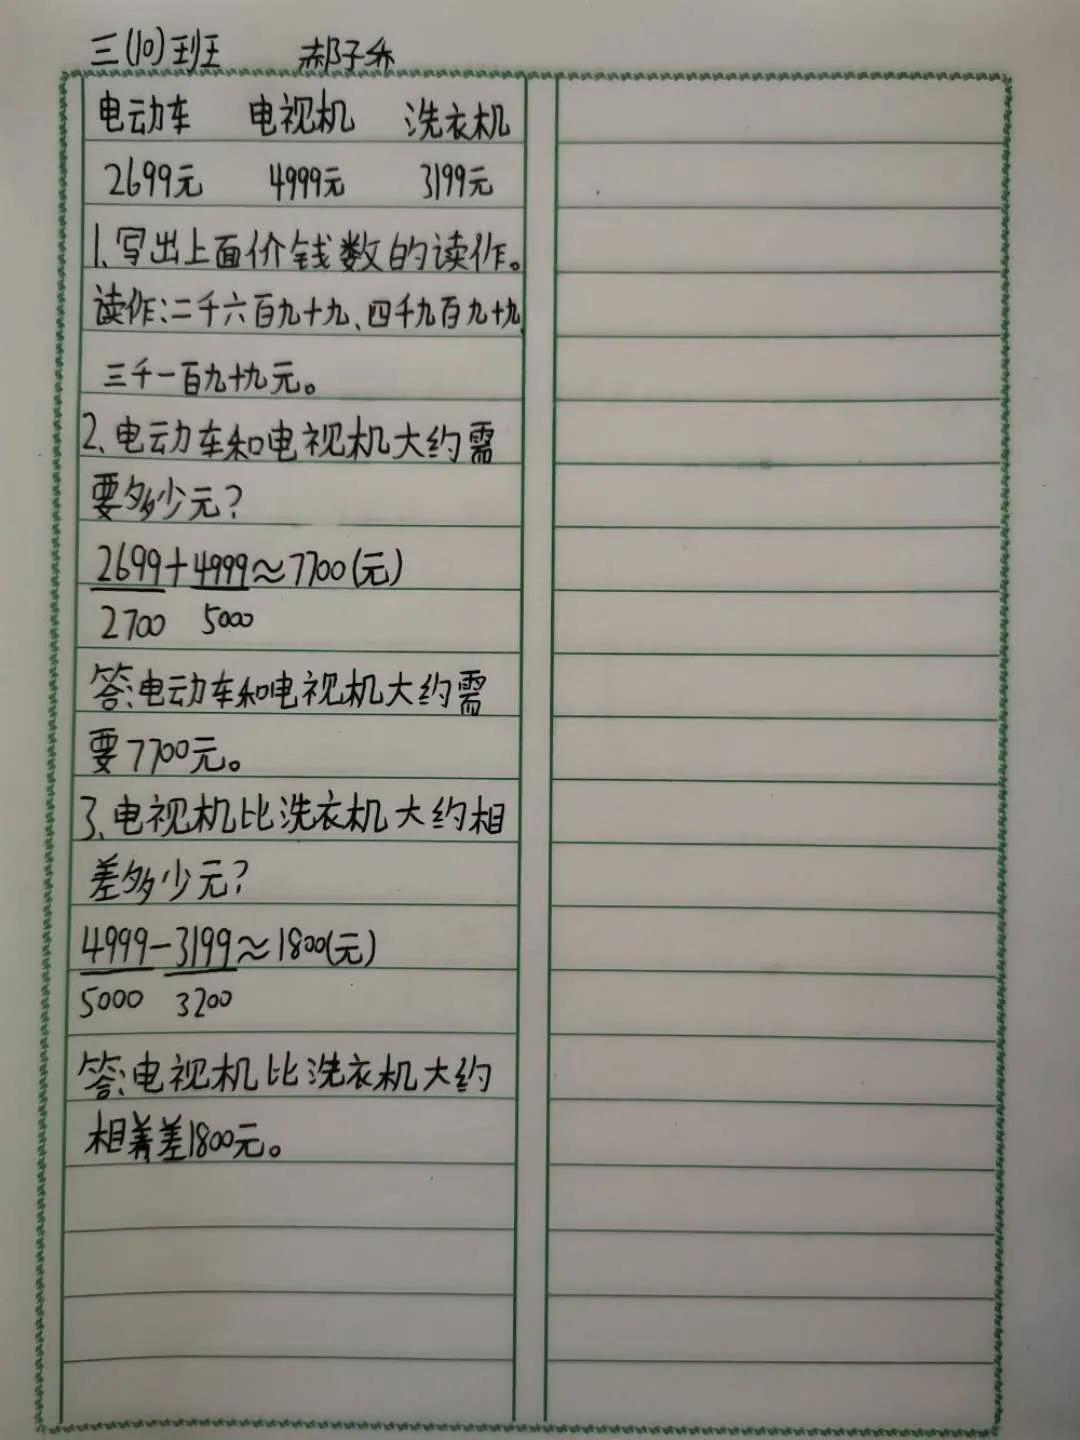 三(10)班 郝子乔
电动车 电视机 洗衣机
2699元 4999元 3199元
1、写出上面价钱数的读作。
读作:二千六百九十九、四千九百九十九
三千一百九十九元。
2、电动车和电视机大约需
要多少元?
2699+4999≈7700(元)
2700 5000
答:电动车和电视机大约需
要7700元。
3、电视机比洗衣机大约相
差多少元?
4999-3199≈1800(元)
5000 3200
答:电视机比洗衣机大约
相差1800元。